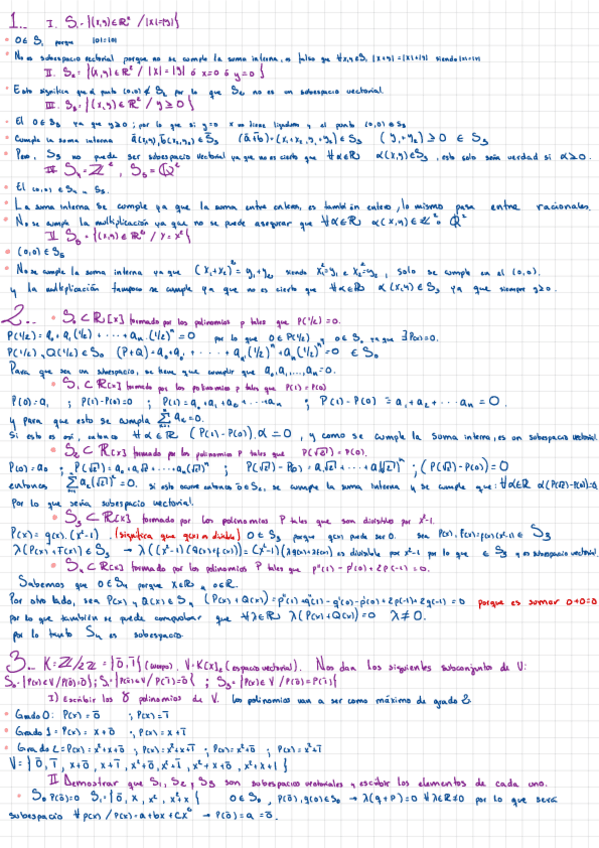 1.. I. S₁={(x,y)∈ℝ² / |x|=|y|}
• 0∈S₁ porque |0|=|0|
• No es subespacio vectorial porque no se cumple la suma interna, es falso que ∀x,y∈S₁ |x+y|=|x|+|y| siendo
II. S₂={(x,y)∈ℝ² / |x|=|y| ó x=0 ó y=0}
• Esto significa que el punto (0,0)∉S₂ por lo que S₂ no es un subespacio vectorial
III. S₃={(x,y)∈ℝ² / y≥0}
• El 0∈S₃ ya que y≥0; por lo que si y=0 x no tiene ligadura y el punto (0,0)∈S₃
• Cumple la suma interna
• Pero, S₃ no puede ser subespacio vectorial ya que no es cierto que ∀α∈ℝ α(x,y)∈S₃, esto solo sería verdad si α≥0.
S₄=ℤ², S₅=ℚ²
• El (0,0)∈S₄ S₅.
• La suma interna se cumple ya que la suma entre enteros, es también entero, lo mismo pasa entre racionales.
• No se cumple la multiplicación ya que no se puede asegurar que ∀α∈ℝ α(x,y)∈ℤ² o ℚ²
S₆={(x,y)∈ℝ² / y=x²}
• (0,0)∈S₆
• No se cumple la suma interna ya que (x₁+x₂)²=y₁+y₂ siendo x₁²=y₁ e x₂²=y₂, solo se cumple en el (0,0).
y la multiplicación tampoco se cumple ya que no es cierto que ∀α∈ℝ α(x,y)∈S₆ ya que siempre y≥0.
2.. • S₀⊂ℝ[x] formado por los polinomios p tales que P(1/2)=0.
P(1/2)=a₀+a₁(1/2)+····+aₙ(1/2)ⁿ=0 por lo que 0∈P(1/2) y 0∈S₀ ya que ∃P(x)=0.
P(1/2), Q(1/2)∈S₀ (P+Q)=a₀+q₀+····+qₙ(1/2)ⁿ+aₙ(1/2)ⁿ=0 ∈S₀
Para que sea un subespacio, se tiene que cumplir que a₀,a₁,...,aₙ=0.
• S₁⊂ℝ[x] formado por los polinomios p tales que P(1)=P(0)
P(0)=a₀ ; P(1)-P(0)=0 ; P(1)=a₀+a₁+a₂+···+aₙ ; P(1)-P(0)=a₁+a₂+···aₙ=0.
y para que esto se cumpla
Si esto es así, entonces ∀α∈ℝ (P(1)-P(0)).α=0, y como se cumple la suma interna, es un subespacio vectorial
• S₂⊂ℝ[x] formado por los polinomios P tales que P(√2)=P(0).
P(0)=a₀ ; P(√2)=a₀+a₁√2+····aₙ(√2)ⁿ ; P(√2)-P(0)=a₁√2+···+aₙ(√2)ⁿ ; (P(√2)-P(0))=0
entonces si esto ocurre entonces 0∈S₂, se cumple la suma interna y se cumple que: ∀α∈ℝ α(P(√2)-P(0))=0
Por lo que sería subespacio vectorial.
• S₃⊂ℝ[x] formado por los polinomios P tales que son divisibles por x²-1.
P(x)=g(x).(x²-1) 0∈S₃ porque g(x) puede ser 0. sea ∈S₃
λ(P(x)+T(x))∈S₃ → es divisible por x²-1 por lo que ∈S₃ y es subespacio vectorial.
• S₄⊂ℝ[x] formado por los polinomios P tales que p''(1)-p'(0)+2p(-1)=0.
Sabemos que 0∈S₄ porque x∈ℝ y 0∈ℝ.
Por otro lado, sea P(x) y Q(x)∈S₄ (P(x)+Q(x))=p''(1)+q''(1)-q'(0)-p'(0)+2p(-1)+2q(-1)=0 porque es sumar 0+0=0
por lo que también se puede comprobar que ∀λ∈ℝ λ(P(x)+Q(x))=0 λ≠0.
por lo tanto S₄ es subespacio
3.. K=ℤ/2ℤ={0̄,1̄}(cuerpo). V=K[x]₂(espacio vectorial). Nos dan los siguientes subconjunto de V:
S₀={P(x)∈V/P(0̄)=0̄}; S₁={P(x)∈V/P(1̄)=0̄} ; S₃={P(x)∈V/P(0̄)=P(1̄)}
I) Escribir los 8 polinomios de V. los polinomios van a ser como máximo de grado 2
• Grado 0: P(x)=0̄ ; P(x)=1̄
• Grado 1=P(x)=x+0̄ ; P(x)=x+1̄
• Grado 2=P(x)=x²+x+0̄ ; P(x)=x²+x+1̄ ; P(x)=x²+0̄ ; P(x)=x²+1̄
V={0̄, 1̄, x+0̄, x+1̄, x²+0̄, x²+1̄, x²+x+0̄, x²+x+1}
II Demostrar que S₁, S₂, y S₃ son subespacios vectoriales y escribir los elementos de cada uno.
• S₀ P(0̄)=0 S₁={0̄, x, x², x²+x} 0∈S₀, P(0̄),g(0)∈S₀ → λ(q+P)=0 ∀λ∈ℝ≠0 por lo que será
subespacio ∀p(x)/P(x)=a+bx+cx² → P(0̄)=a=0̄.